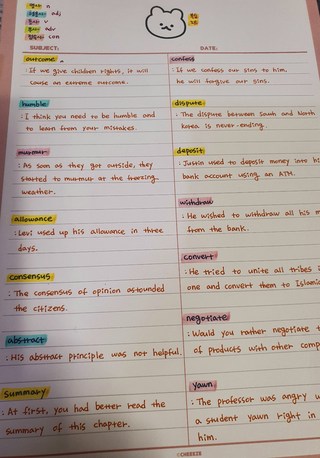 명사 n
형용사 adj
동사 v
부사 adv
접속사 con
SUBJECT:
DATE:
outcome
: If we give children rights, it will
cause an extreme outcome.
humble
: I think you need to be humble and
to learn from your mistakes.
murmur
: As soon as they got outside, they
started to murmur at the freezing
weather.
allowance
: Levi used up his allowance in three
days.
consensus
: The consensus of opinion astounded
the citizens.
abstract
: His abstract principle was not helpful.
summary
: At first, you had better read the
summary of this chapter.
confess
: If we confess our sins to him,
he will forgive our sins.
dispute
: The dispute between South and North
Korea is never-ending.
deposit
: Justin used to deposit money into hi
bank account using an ATM.
withdraw
: He wished to withdraw all his m
from the bank.
convert
: He tried to unite all tribes
one and convert them to Islamic
negotiate
: Would you rather negotiate t
of products with other comp
yawn
: The professor was angry w
a student yawn right in
him.
CHEEZE